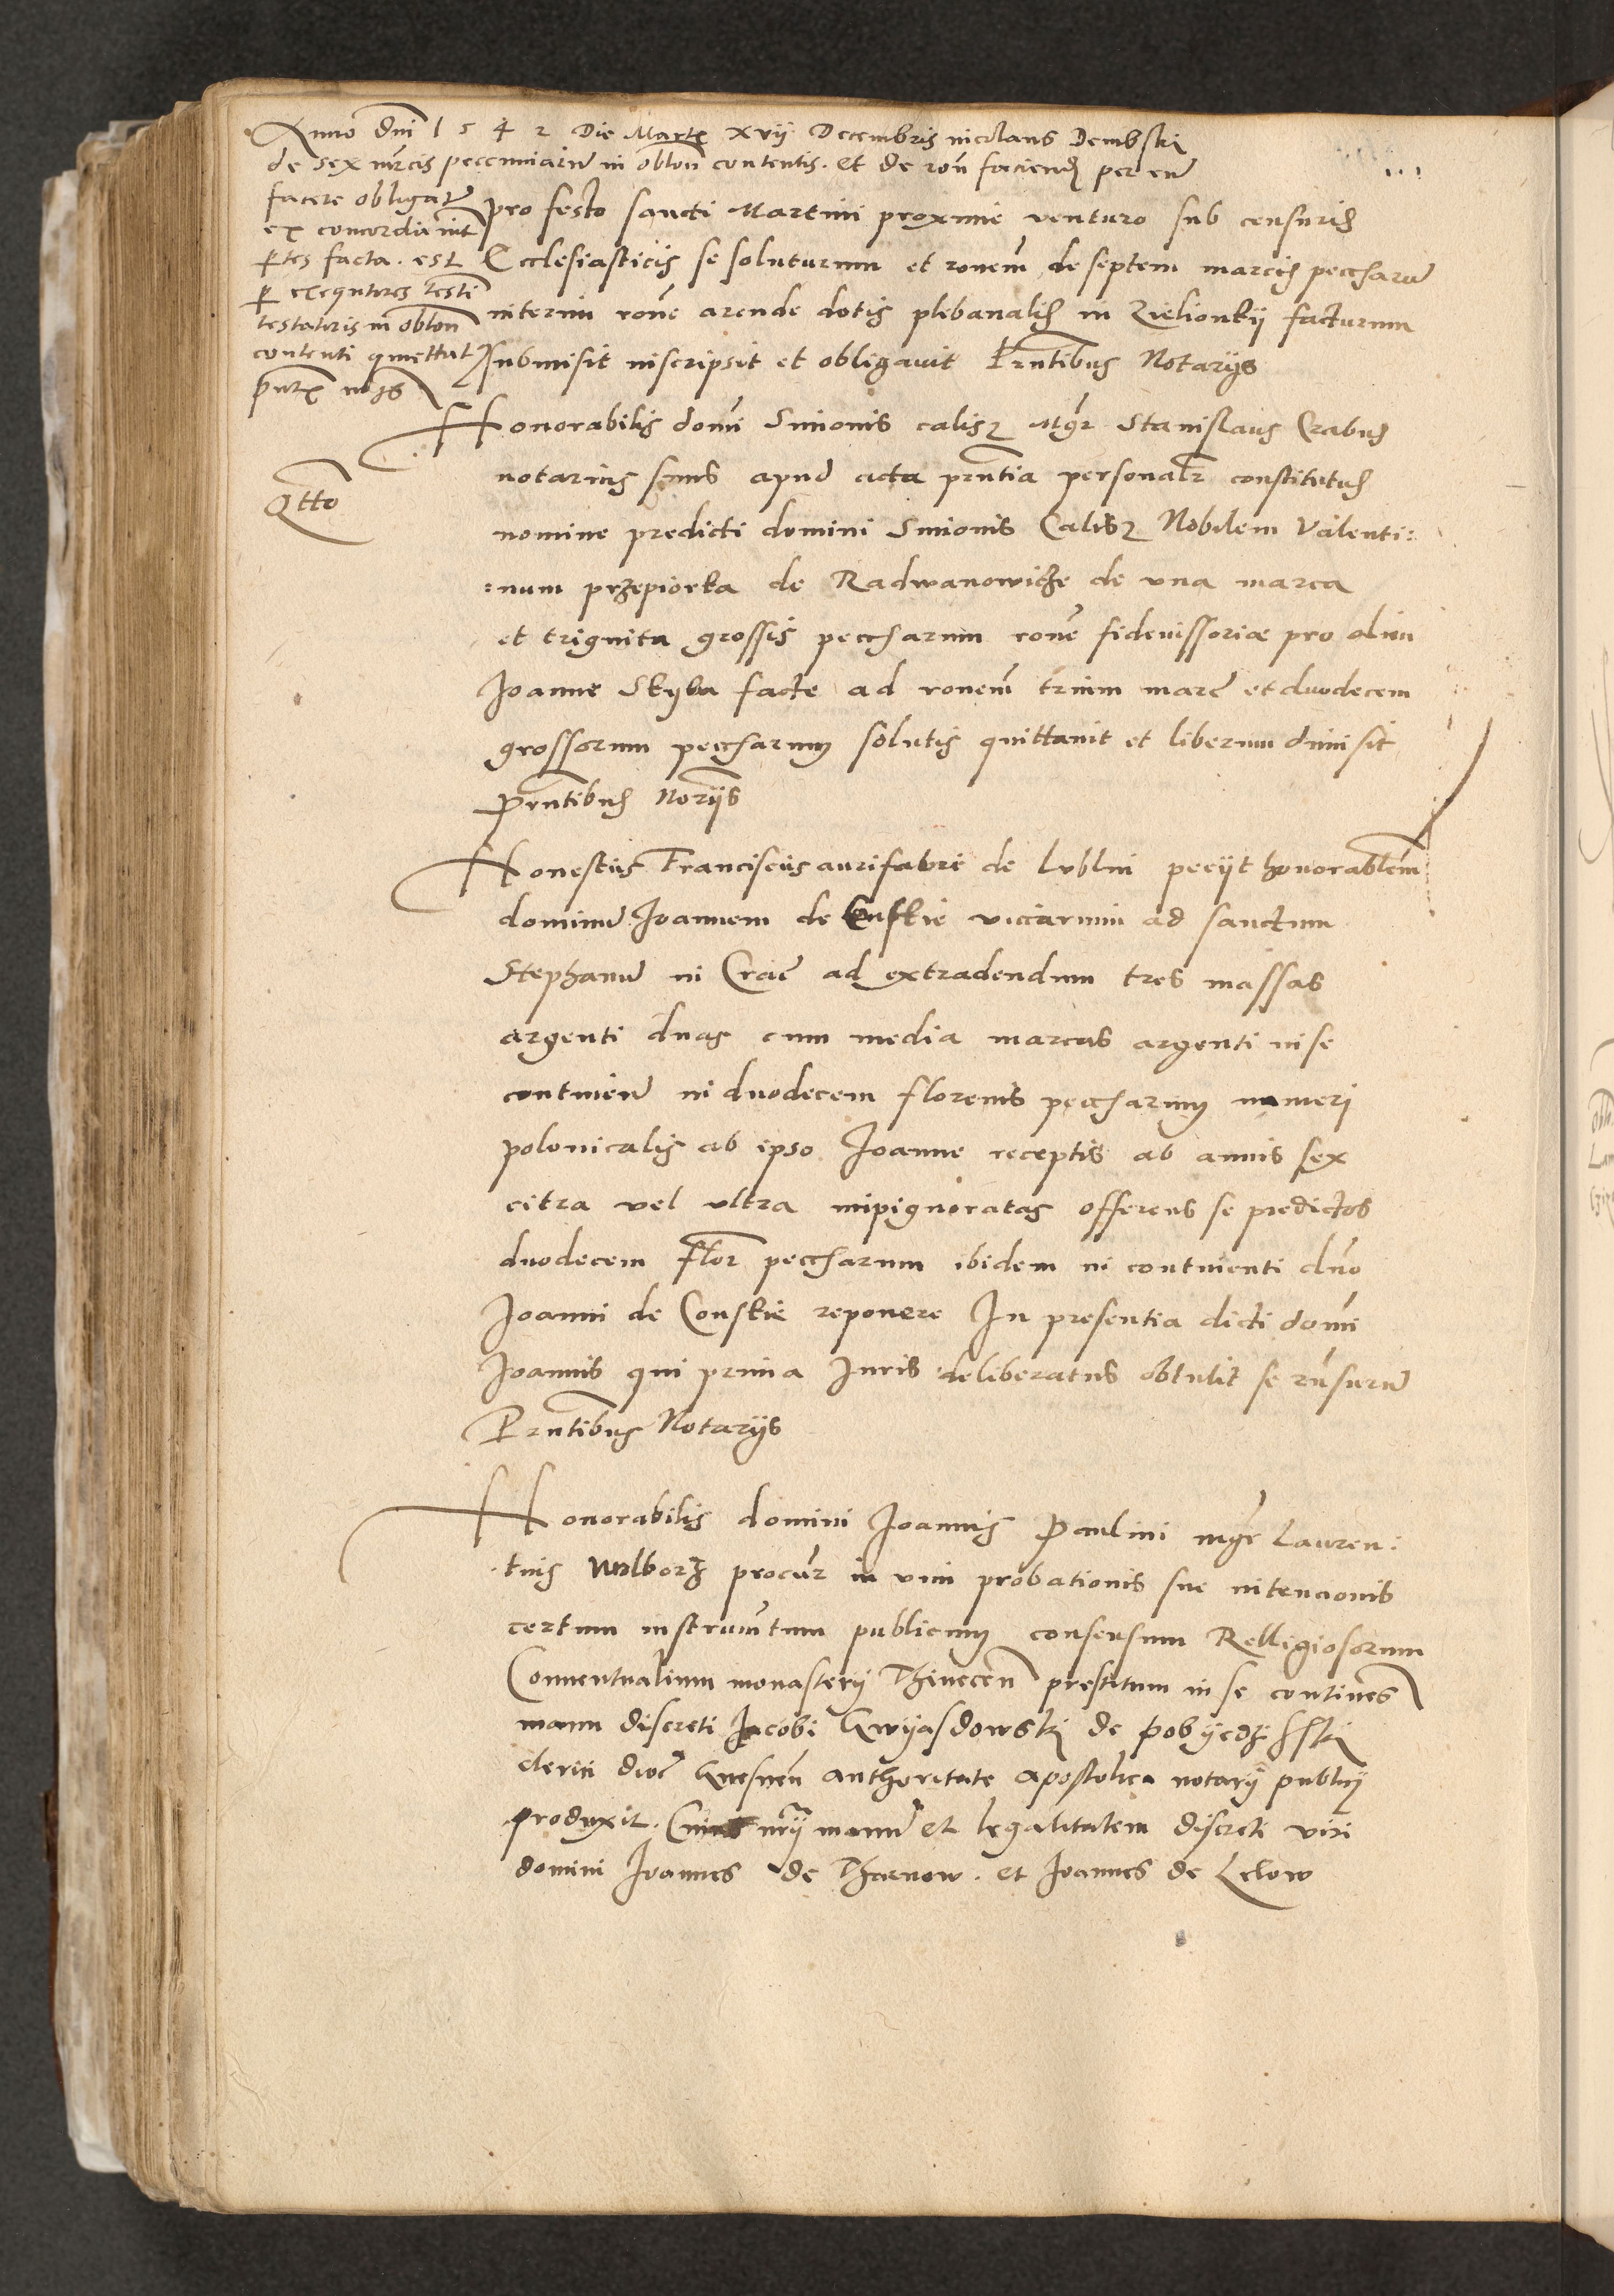 Anno dni 1542 Die Martis xvij Decembris nicolaus Dembski
de sex mrcis pecuniarum in oblon contentis. et de ron faciend per eum
facere obligatur
ex concordia int
ptes facta. est
p exequtores testi
testatoris in oblon
contenti quiettat
pntx nojs
pro festo sancti Martini proxime venturo sub censuris
Ecclesiasticis se soluturum et ronem de septem marcis peccharum
interim rone arende dotis plebanalis in Zielionkij facturum
submisit inscripsit et obligavit Prntibus Notarijs
Honorabilis domi Simonis calisz Mgr Stanislaus Crabus
notarius suus apud acta prntia personalr constitutus
Qtto
nomine predicti domini Simonis Calisz Nobilem Valenti:
:num przepiorka de Radwanowicze de una marca
et triginta grossis peccharum rone fideiussoriae pro olim
Joanne Skyba facte ad ronem trium marc et duodecem
grossorum peccharum solutis quittavit et liberum dimisit
Prntibus Norijs
Honestus Franciscus aurifabri de Lublin pecijt honorablem
dominum Joannem de Conskie viccarium ad sanctum
Stephanum in Crac ad extradendum tres massas
argenti duas cum media marcas argenti in se
continen in duodecem florenis peccharum numeri
polonicalis ab ipso Joanne receptis ab annis sex
citra vel ultra inpignoratas offerens se predictos
duodecem flor peccharum ibidem in continenti dno
Joanni de Conskie reponere In presentia dicti domi
Joannis qui prima Juris deliberatus obtulit se rnsurum
Prntibus Notarijs
Honorabilis domini Joannis Paulini mgr Lauren:
tius Wolborz procur in vim probationis sue intencionis
certum instrumtum publicum consensum Relligiosorum
Conventualium monasterij Thinecen prestitum in se continens
manu discreti Jacobi Gwijasdowski de pobijedz
clerici dioc Gnesnen authoritate apostolica notarij publici
produxit. Cuius nrij manum et legalitatem discreti viri
domini Joannes de Tharnow. et Joannes de Lelow